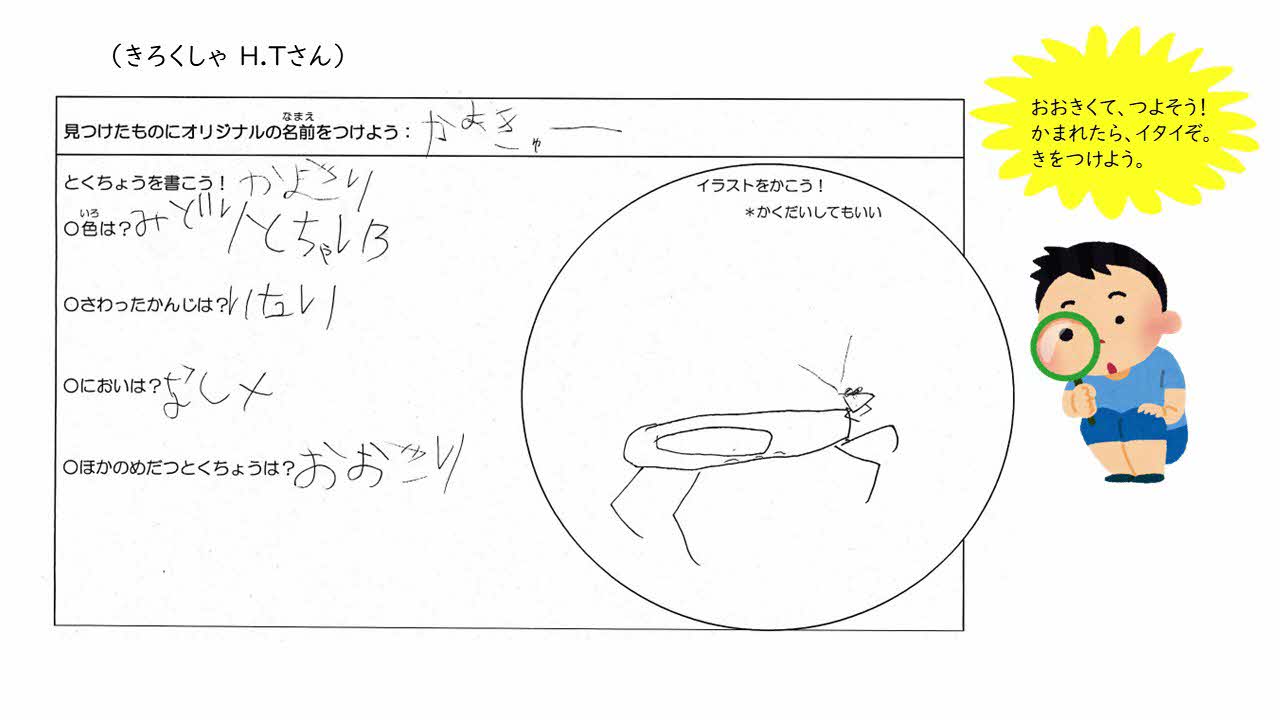 （きろくしゃ H.Tさん）
見つけたものにオリジナルの名前をつけよう： かまきゅー
なまえ
とくちょうを書こう！
いろ
○色は？みどりとちゃいろ
○さわったかんじは？いたい
○においは？なし
○ほかのめだつとくちょうは？
イラストをかこう！
＊かくだいしてもいい
おおきくて、つよそう！
かまれたら、イタイぞ。
きをつけよう。